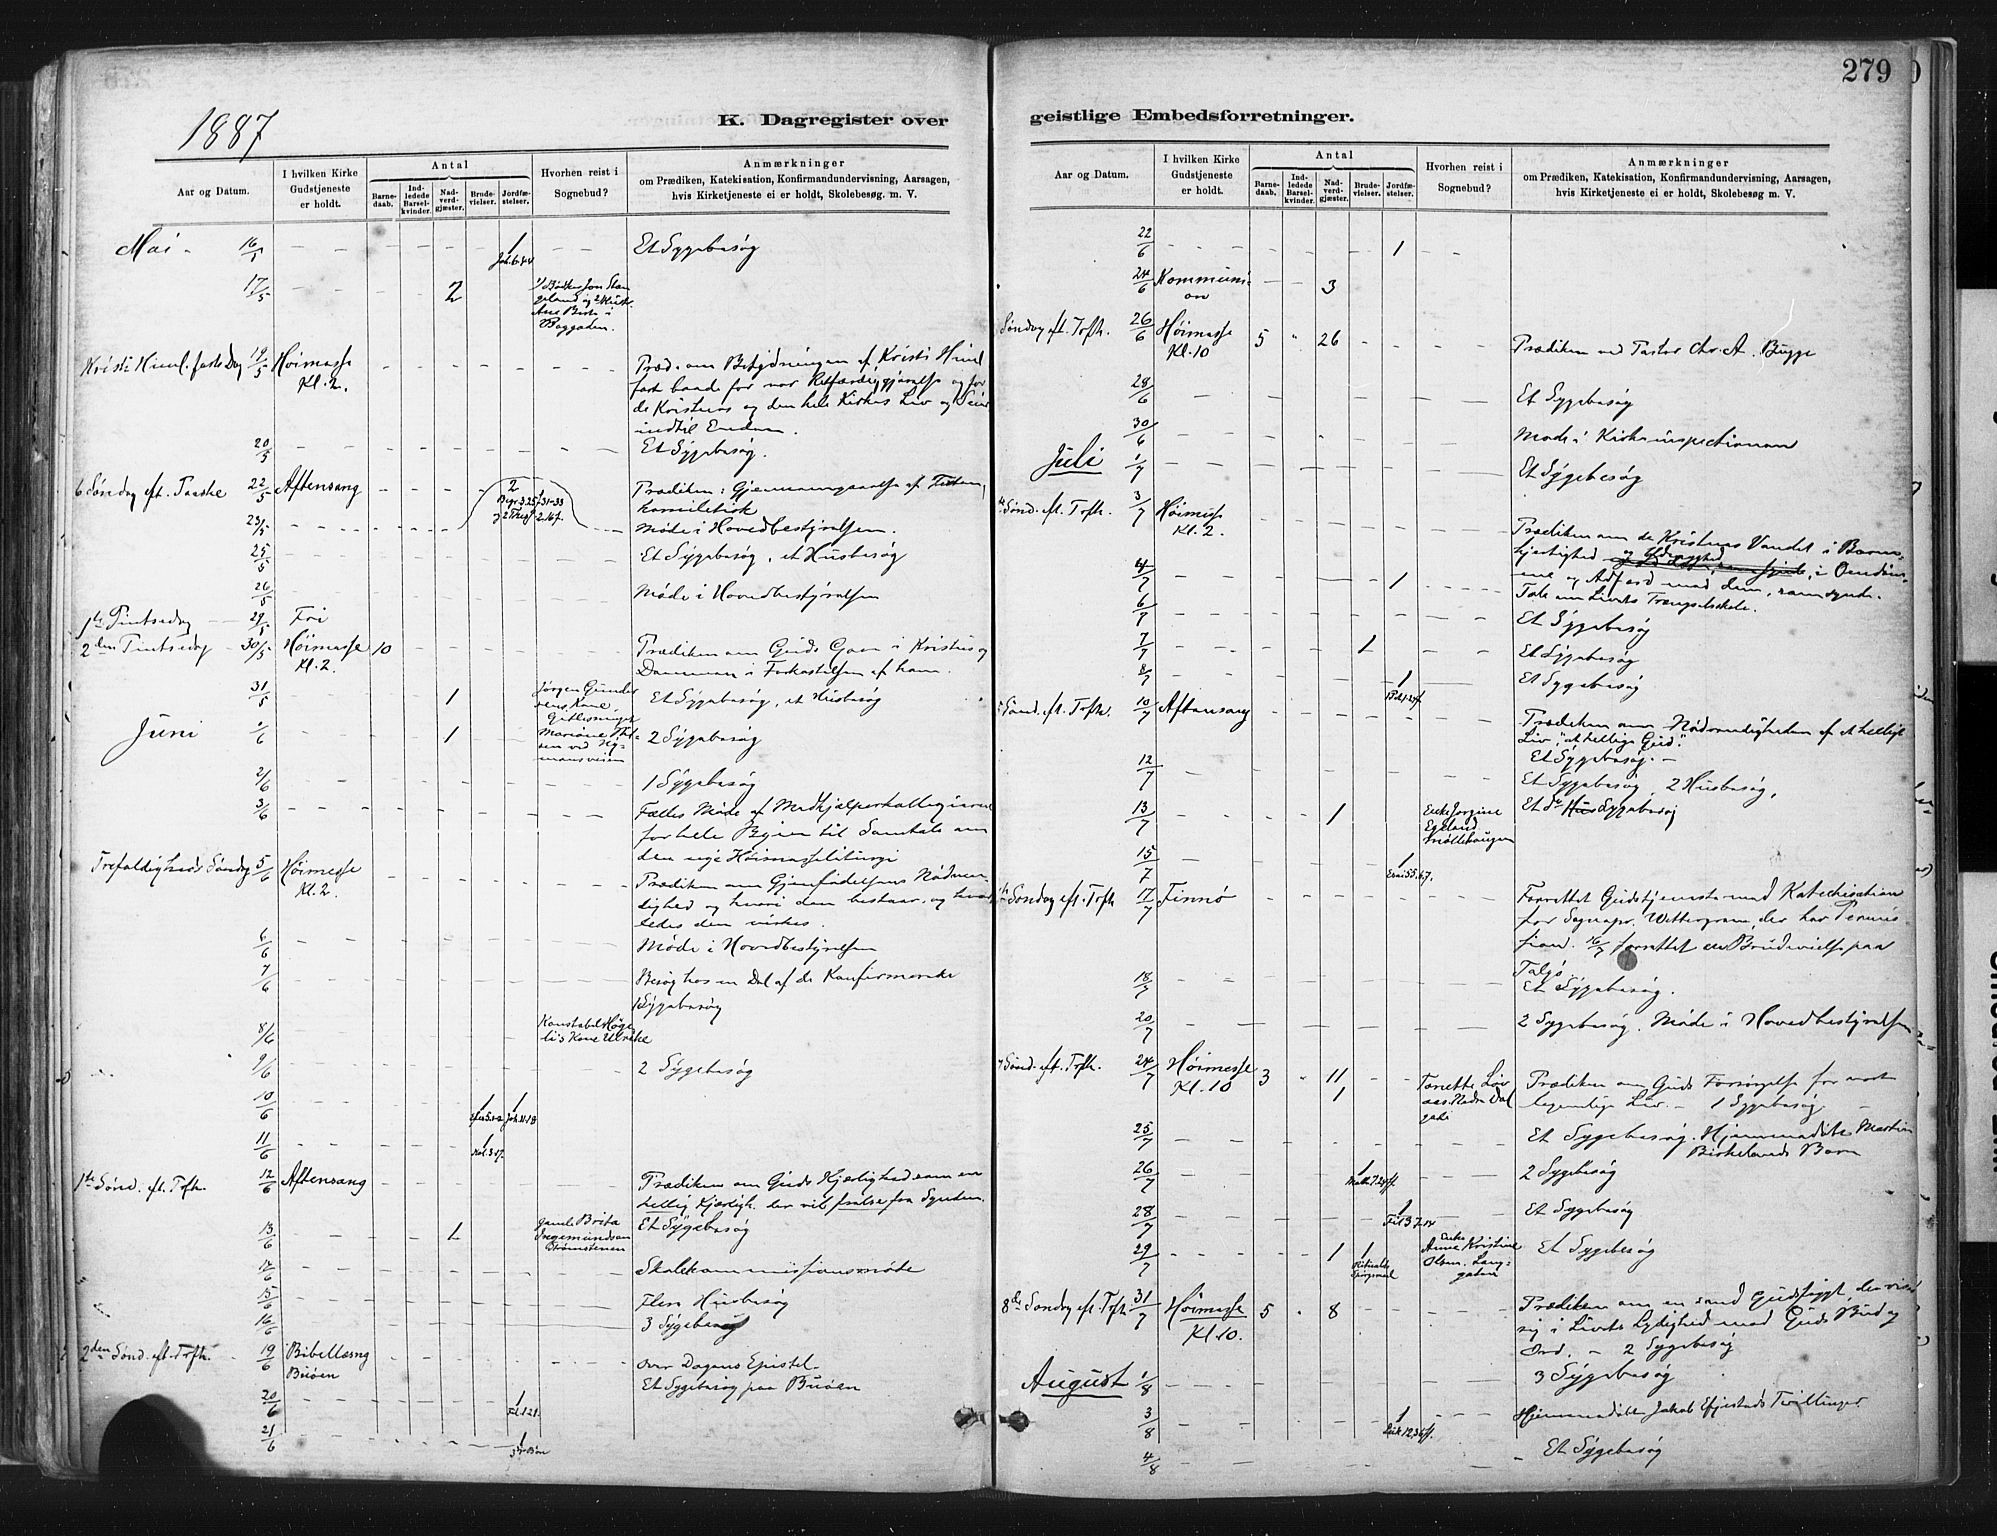 279
1887
K. Dagregister over
geistlige Embedsforretninger.
Aar og Datum.
I hvilken Kirke Gudstjeneste er holdt.
Antal
Barnedaab.
Indledede Barselkvinder.
Nadverdgjæster.
Brudevielser.
Jordfæstelser.
Hvorhen reist i Sognebud?
Anmærkninger
om Prædiken, Katekisation, Konfirmandundervisning, Aarsagen,
hvis Kirketjeneste ei er holdt, Skolebesøg m. V.
Mai 16/5 1 Et Sygebesøg
Joh. 6.44
17/5 2
Kristi Himl. farts Dag 19/5 Høimesse Præd. om Betydningen af Kristi Himl
Kl. 2. fart baade for vor Retfærdiggjørelse og for
de Kristnes og den hele Kirkes Liv og Seier
indtil Enden.
20/5 Et Sygebesøg.
6 Søndag eft. Paaske 22/5 Aftensang 2 Prædiken: Gjennemgaaelse af Texten,
homiletisk
23/5 Møde i Hovedbestyrelsen.
25/5 Et Sygebesøg, et Husbesøg
26/5 Møde i Hovedbestyrelsen
1ste Pintsedag 29/5 Fri
2den Pintsedag 30/5 Høimesse 10 Prædiken om Guds Gave i Kristus og
Kl. 2. Dommen i Forkastelsen af ham.
31/5 1 Jørgen Gunder Et Sygebesøg, et Husbesøg
sens Kone,
Juni 1/6 1 2 Sygebesøg
2/6 1 Sygebesøg
3/6 Fælles Møde af Medhjælperkollegierne
for hele Byen til Samtale om
den nye Høimesseliturgi
Trefoldigheds Søndag 5/6 Høimesse Prædiken om Gjenfødelsens Nødven
Kl. 2. dighed og hvori den bestaar, og hvor
ledes den virkes.
6/6 Møde i Hovedbestyrelsen
7/6 Besøg hos en Del af de Konfirmerede
1 Sygebesøg
8/6 Konstabel Høge
lis Kone Ulrikke
9/6 2 Sygebesøg
10/6 1 1
Joh. 11.18
11/6 1
Kol. 3.17.
1ste Sønd. eft. Trfh. 12/6 Aftensang Prædiken om Guds Kjærlighed som en
hellig Kjærligh. der vil frelse fra Synden.
13/6 1 Gamle Brita Et Sygebesøg
Ingemundsen
Strømstenen
14/6 Skolekommissionsmøde
15/6 Flere Husbesøg
16/6 3 Sygebesøg
2den Sønd. eft. Trfh. 19/6 Bibellæsng over Dagens Epistel.
Buøen Et Sygebesøg paa Buøen
20/6 1
Fil. 1.21.
21/6 1
22/6 1
24/6 Kommuni- 3
on
Søndag eft. Trfh. 26/6 Høimesse 5 26 Prædiken ved Pastor Chr. A. Bugge
Kl. 10
28/6 Et Sygebesøg
30/6 Møde i Kirkeinspectionen
Juli 1/7 Et Sygebesøg
4de Sønd. eft. Trfh. 3/7 Høimesse Prædiken om de Kristnes Vandel i Barm-
Kl. 2. hjertighed
4/7 1 og Adfærd mod dem, som synde.
Tale om Livets Trængselsskole.
6/7 Et Sygebesøg
7/7 1 Et Sygebesøg
8/7 1 Et Sygebesøg
Sønd. eft. Trfh. 10/7 Aftensang Prædiken om Nødvendigheden af et helligt
Liv, "et helligt Gud".
Et Sygebesøg.
12/7 Et Sygebesøg, 2 Husbesøg,
13/7 1 Enke Jorgine Et Sygebesøg
Egeland
Møllehaugen
15/7 1
Søndag eft. Trfh 17/7 Finnø Forrettet Gudstjeneste med Katechisation
for Sognepr. Wettergreen, der har Permis-
sion. 16/7 forrettet en Brudevielse paa
Talgø
18/7 Et Sygebesøg.
20/7 2 Sygebesøg. Møde i Hovedbestyrelsen
7 Sønd. eft. Trfh. 24/7 Høimesse 3 11 Prædiken om Guds Forsørgelse for vort
Kl. 10 1 legemlige Liv. 1 Sygebesøg
25/7 Et Sygebesøg. Hjemmedøbte Martin
Birkelands Barn
26/7 1 2 Sygebesøg
28/7 1 Et Sygebesøg
29/7 1 1 Enke Anne Kristine Et Sygebesøg
Olsen. Lang-
gaden
8de Søndag eft. Trfh 31/7 Høimesse 5 8 Prædiken om en sand Gudsfrygt, der viser
Kl 10. sig i Livets Lydighed mod Guds Bud og
Ord. 2 Sygebesøg
August 1/8 3 Sygebesøg
3/8 1 Hjemmedøbt Jakob Tvillinger
4/8 Et Sygebesøg